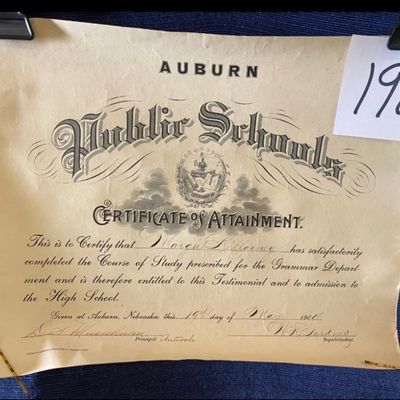 AUBURN
19
Public Schools
CERTIFICATE OF ATTAINMENT.
This is to Certify that has satisfactorily
completed the Course of Study prescribed for the Grammar Depart-
ment and is therefore entitled to this Testimonial and to admission to
the High School.
Given at Auburn, Nebraska this 19th day of May 1904
Principal Superintendent